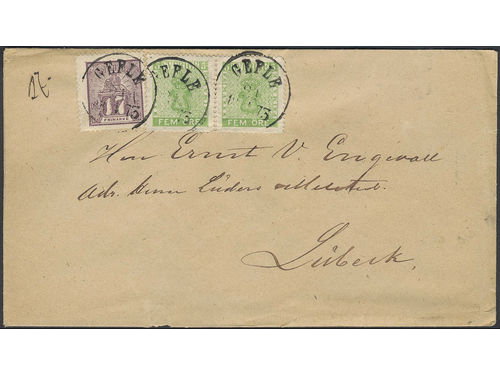 GEFLE GEFLE GEFLE
17 75 75
FRIMÄRKE FEM ÖRE FEM ÖRE
Herr Ernst V. Engwall
Adr. Herrn Lüders
Lübeck.